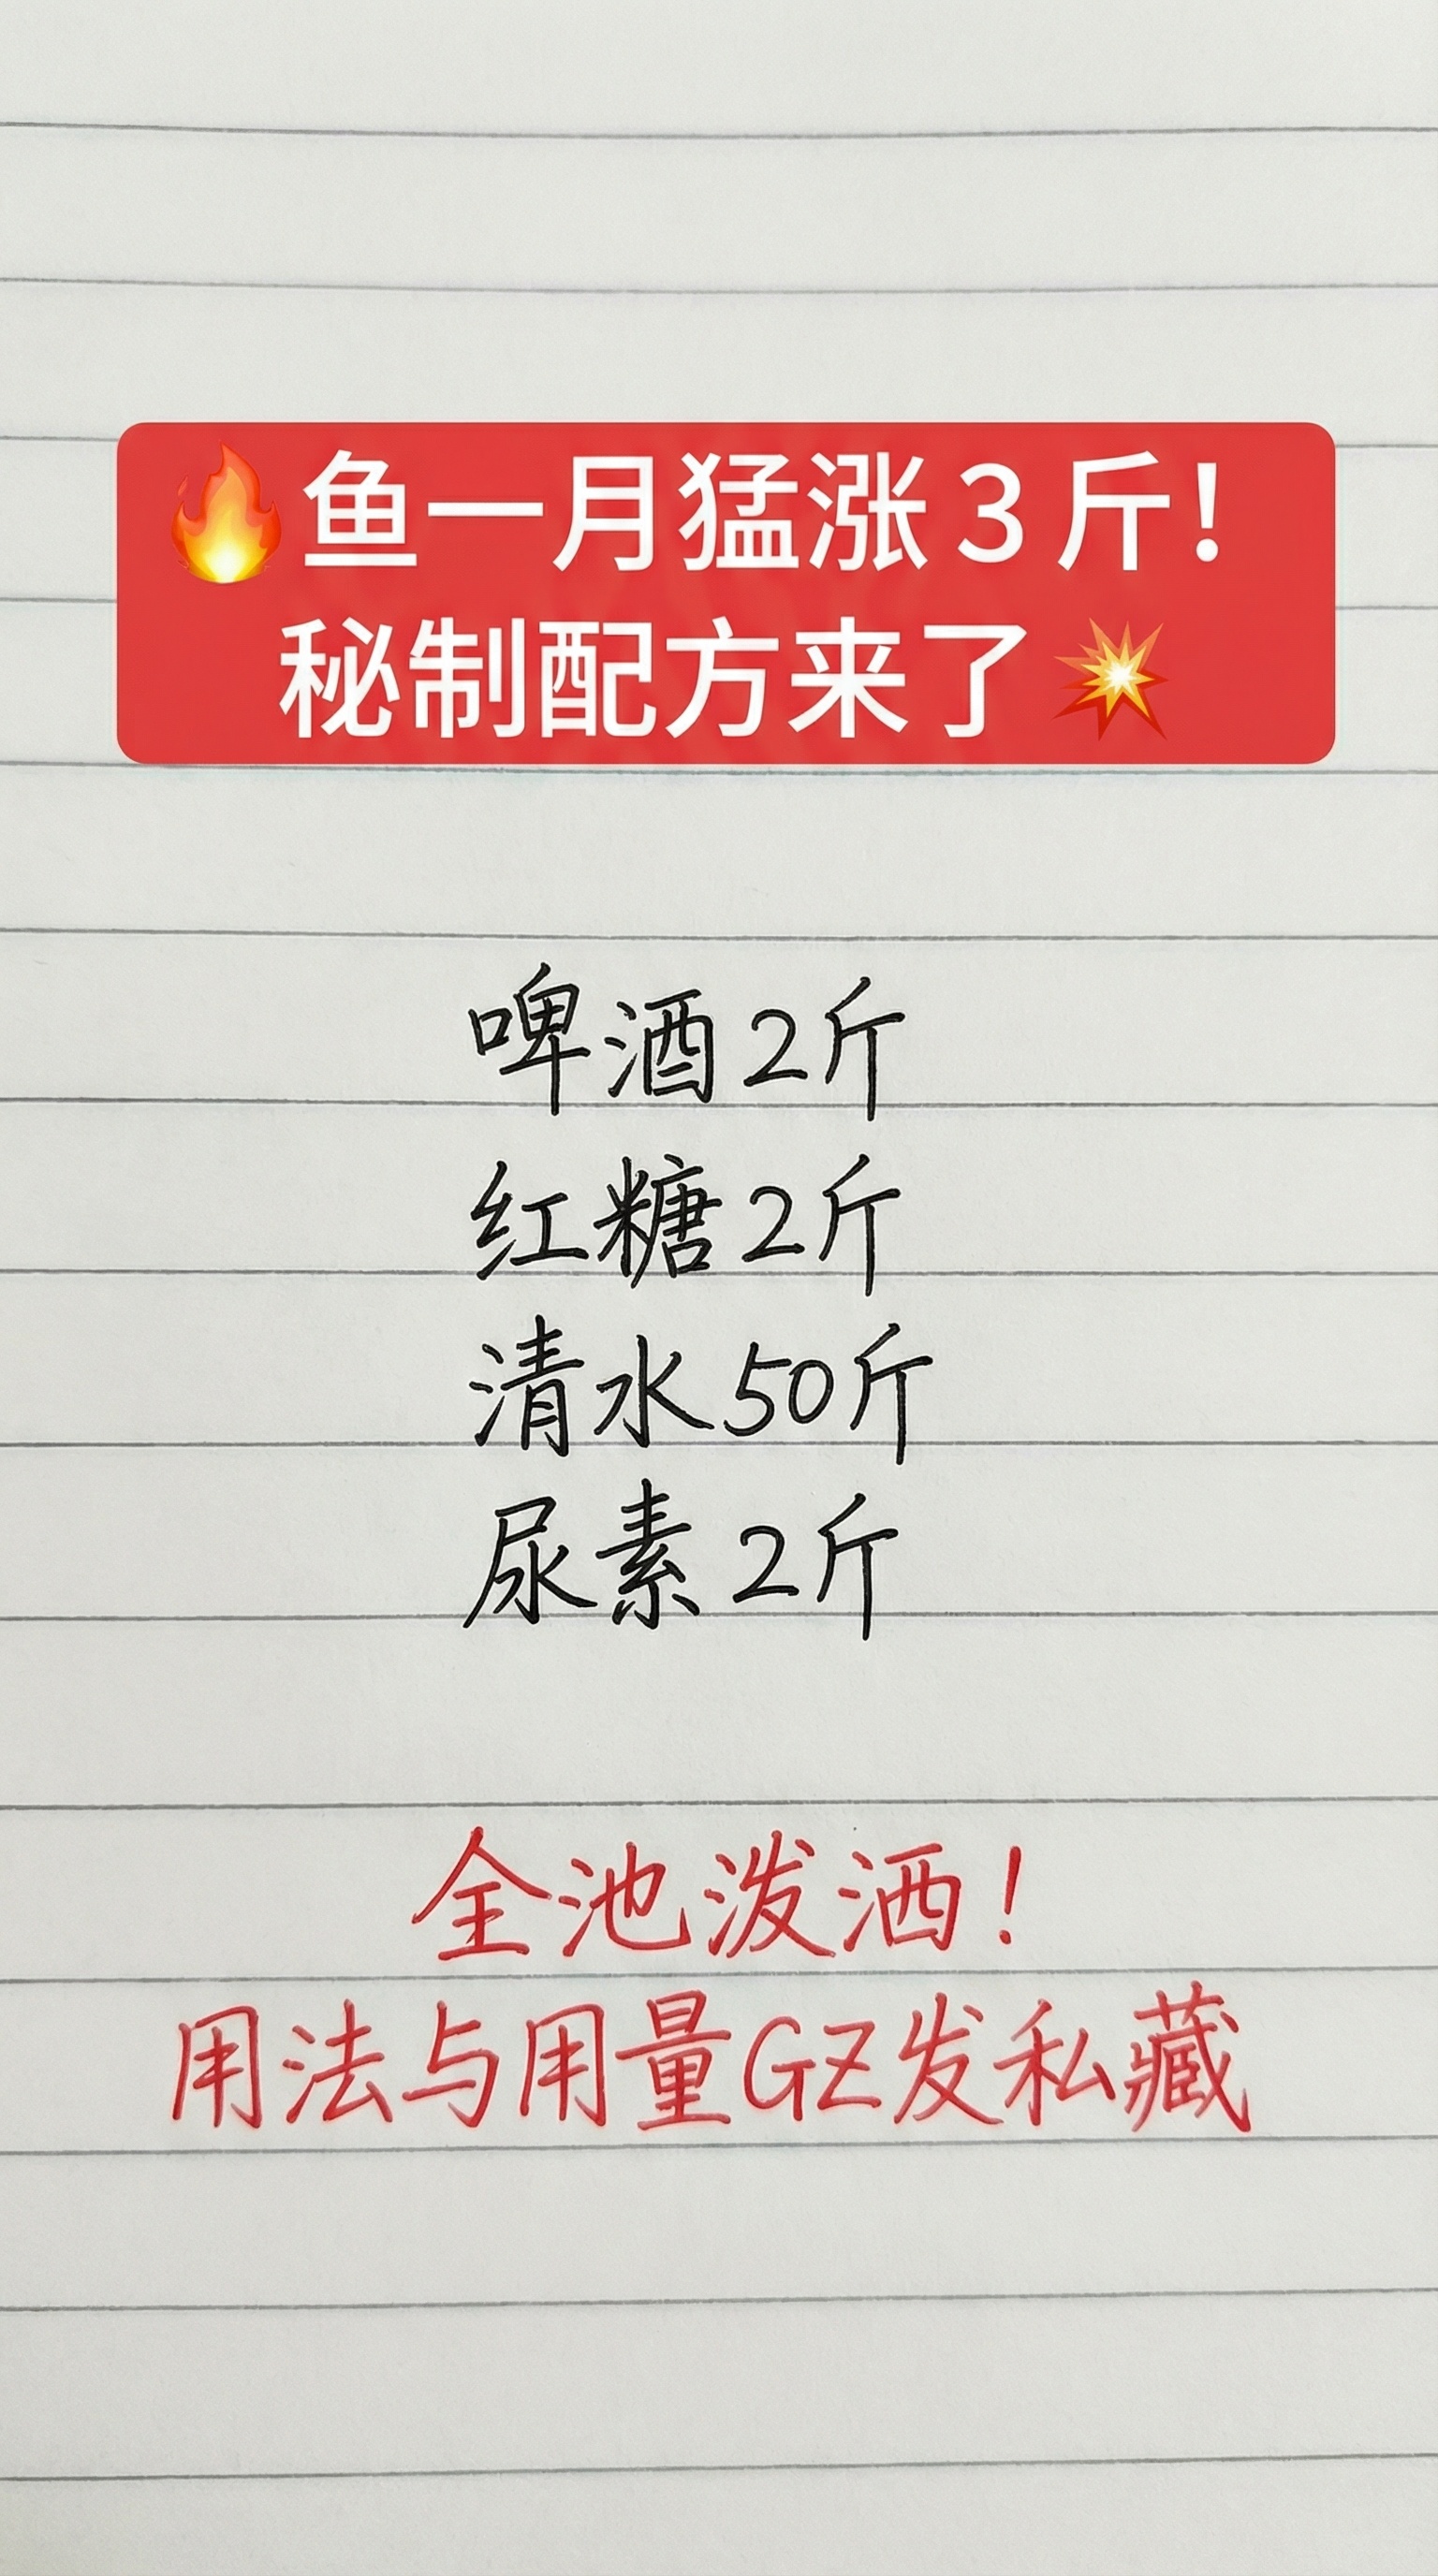 🔥鱼一月猛涨3斤！
秘制配方来了💥
啤酒2斤
红糖2斤
清水50斤
尿素2斤
全池泼洒！
用法与用量GZ发私藏